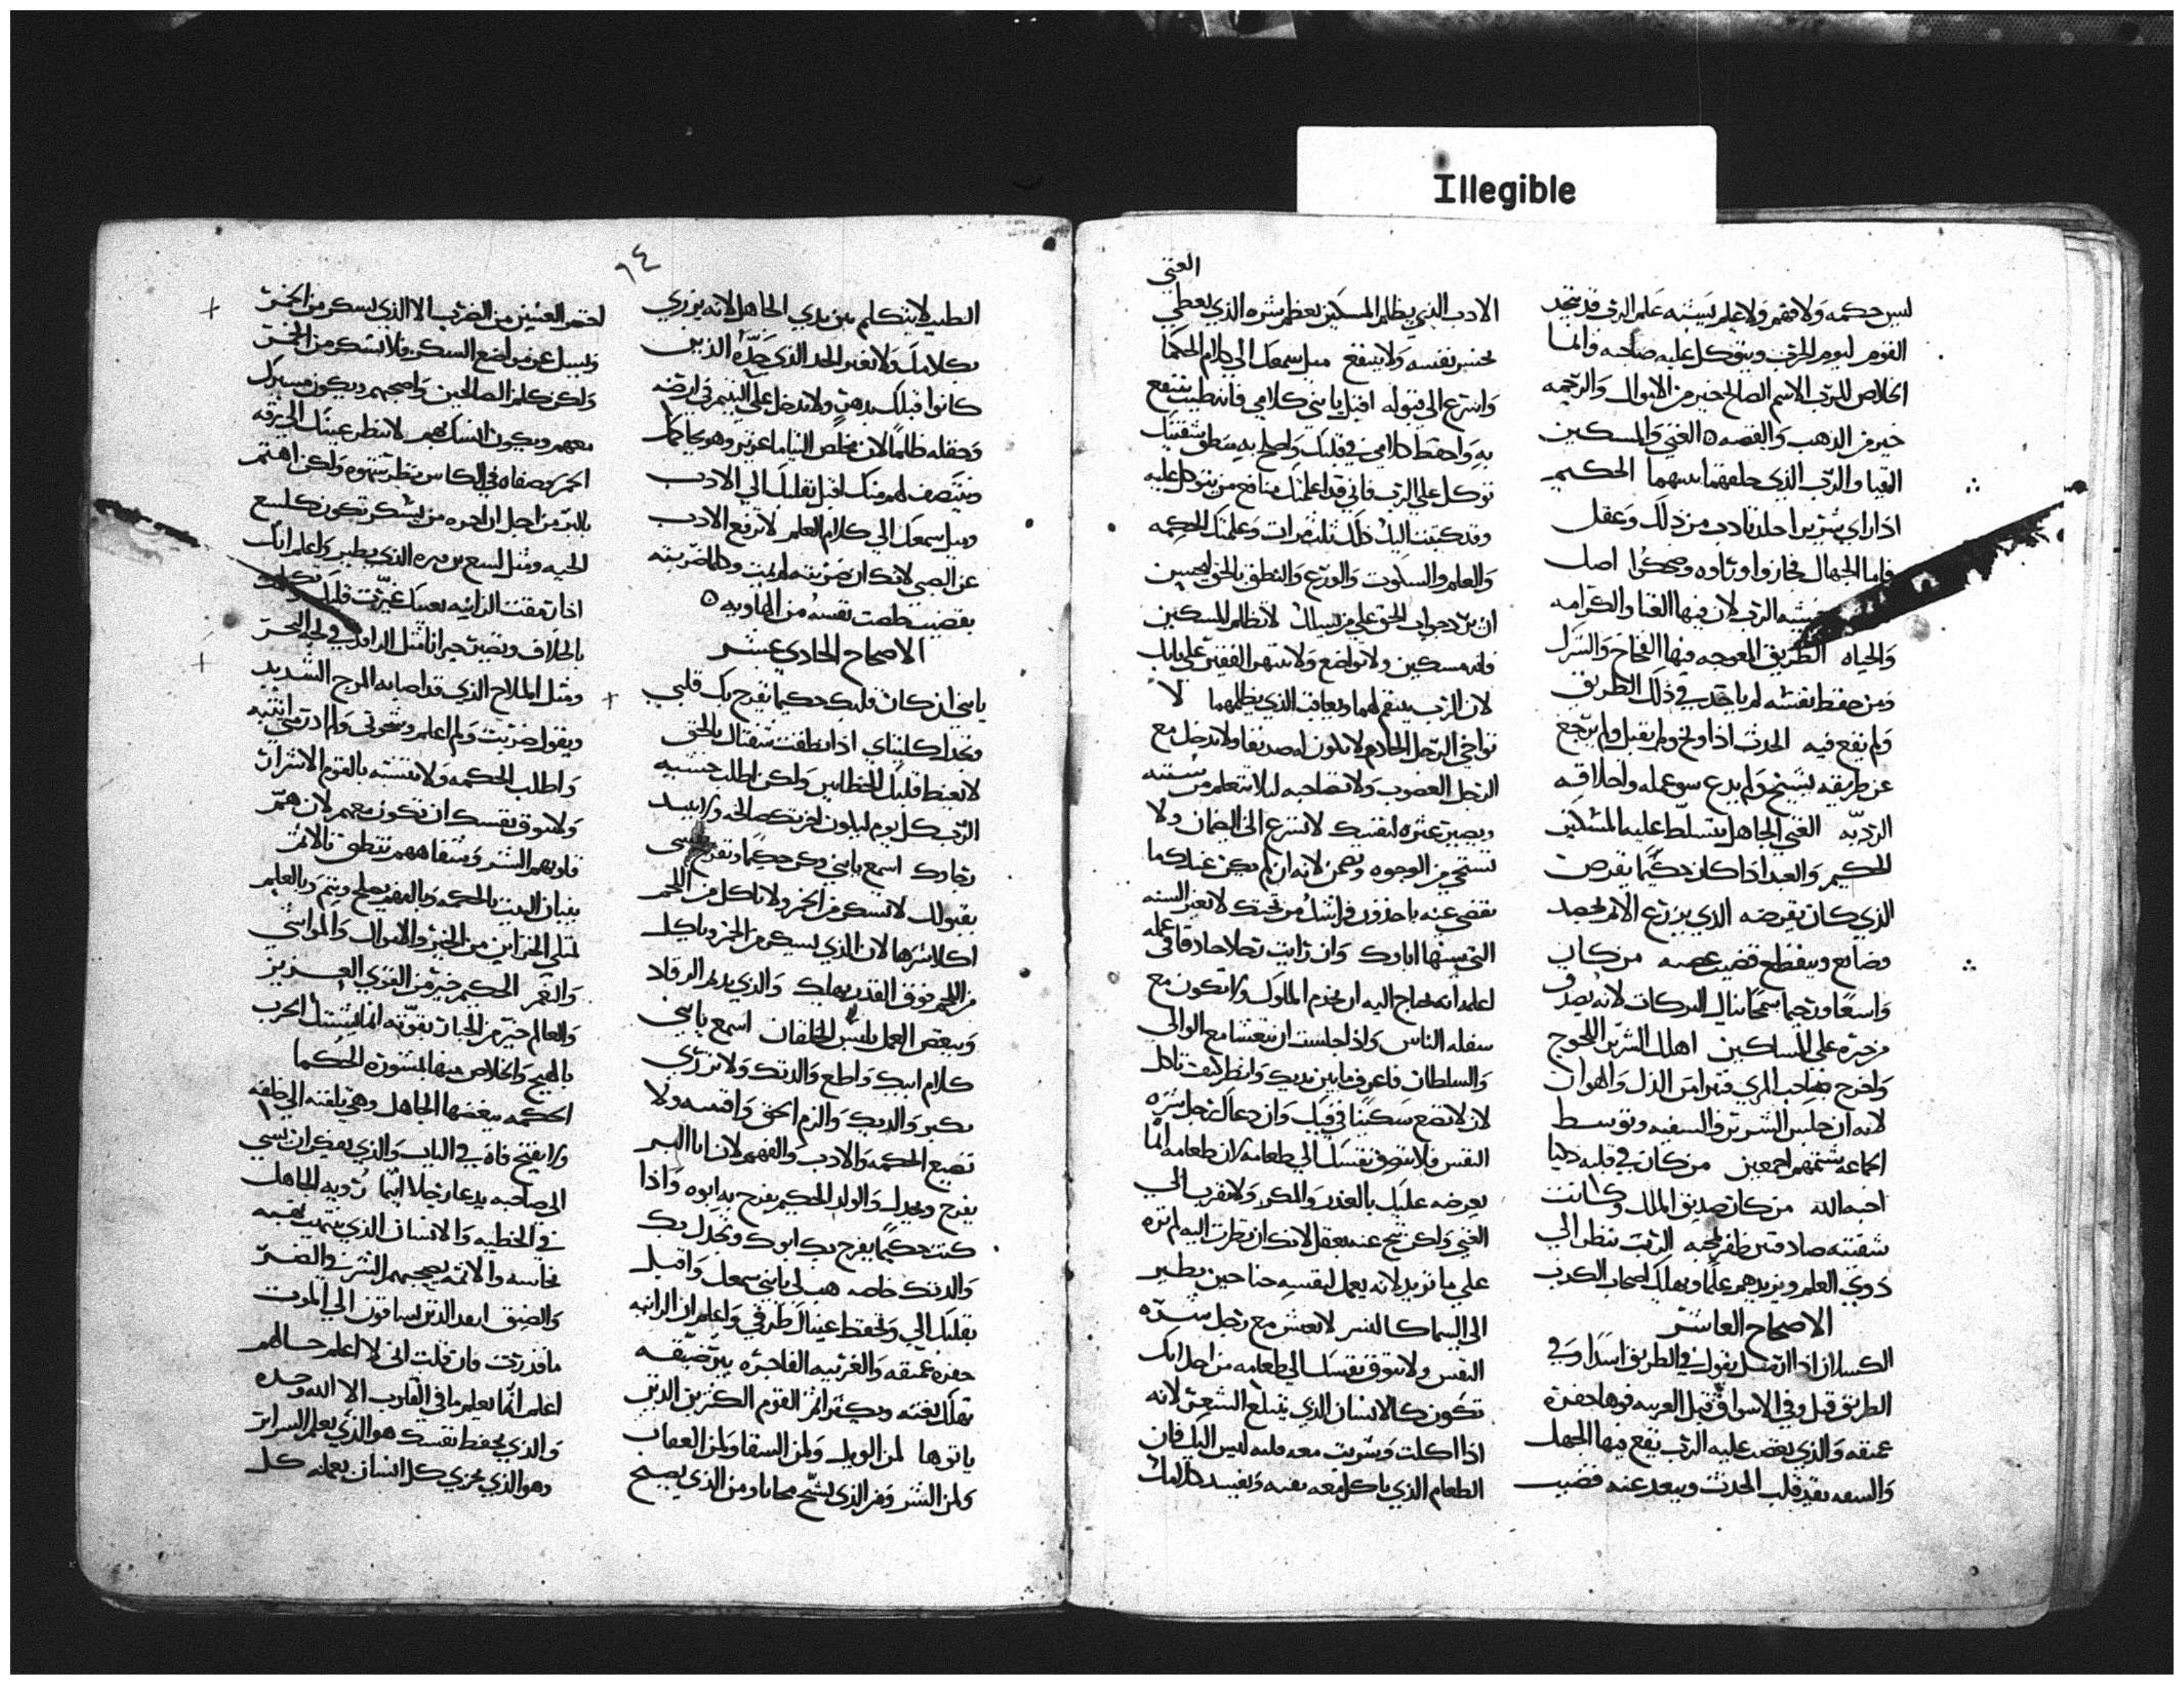 Illegible
ليس حكمه ولا فهم ولا علم يشبه علم الرب قد يتخد
القوم ليوم الحرب ويتوكل عليه صاحبه وانما
الخلاص للرب الاسم الصالح خير من الاموال والرحمه
خير من الذهب والفضه الغني والمسكين
التقيا والرب الذي خلقهما بينهما الحكيم
اذا راي شرير احد تادب من ذلك وعقل
فاما الجهال فجازوا وضحكوا اصل
الرب لان فيها الغنا والكرامه
والحياه الطريق المعوجه فيها الفخاخ والشرك
ومن حفظ نفسه لم ياخذ في ذلك الطريق
ولم يقع فيه الحدث اذا ولم يقبل ولم يرجع
عن طريقه ولم يدع سو عمله واخلاقه
الرديه الغني الجاهل يتسلط عليه المسكين
الحكيم والعبد اذا كان حكيما يقرض
الذي كان يقرضه الذي يزرع الاثم يحصد
وينقطع قضيب من كان
واسعا رحيما سمحا ينال البركات لانه يصدق
من خبزه علي المساكين اهلك الشرير اللجوج
واخرج صاحب المري الذل والهوان
لانه ان جلس الشرير والسفيه وتوسط
الجماعه يشتمهم اجمعين من كان في قلبه
احبه الله من كان صديق الملك وكانت
شفتيه صادقتين ظفر بمحبه الرب تنظر الي
دوي العلم ويزيدهم علما ويهلك اصحاب الكدب
الاصحاح العاشر
الكسلان اذا ارسل يقول في الطريق اسدا وفي
الطريق قيل وفي الاسواق قتيل الغريبه فوها حفره
عميقه والذي يغضب عليه الرب يقع فيها الجهل
والسفه يقيد قلب الحدث ويبعد عنه قضيب
الغني
الادب الذي يظلم المسكين يعظم شره الذي يعطي
نفسه ولا ينتفع ميل سمعك الي كلام الحكما
واسرع الي قبوله اقبل يا بني كلامي فانه ينتفع
به واحفظ كلامي في قلبك واصلح به منطق شفتيك
توكل علي الرب فاني قد اعلمتك منافع من يتوكل عليه
وقد كتبت اليك ذلك ثلث مرات وعلمتك الحكمه
والعلم والسكوت والورع والنطق بالحق
ان ترد جواب الحق علي من يسالك لا تظلم المسكين
فانه مسكين ولا تواضع ولا تنتهر الفقير علي بابك
لان الرب ينتقم لهما ويعاقب الذي يظلمهما لا
تواخي الرجل الحادم لا تكون له صديقا ولا تدخل مع
الرجل الغضوب ولا تصاحبه ليلا تتعلم من سنته
ويصير عثره لنفسك لا تسرع الي الضمان ولا
تستحي من الوجوه لانه ان لم يكن عندك ما
تقضي عنه ياخذون فراشك من تحتك لا تغير السنه
التي سنها اباوك وان رايت رجلا حاذقا في عمله
اعلم انه يحتاج اليه ان يخدم الملوك ولا تكون مع
سفله الناس واذا جلست ان تتعشا مع الوالي
والسلطان فاعرف ما بين يديك وانظر كيف تاكل
لان لا تضع سكينا في فيك وان دعاك رجل شره
النفس فلا تتوق نفسك الي طعامه لان طعامه انما
يعرضه عليك بالغدر والمكر ولا تقرب الي
الغني ولكن تنح عنه بعقل لانك ان نظرت اليه لم تره
علي ما تريد لانه يعمل لنفسه جناحين يطير
الي السما كالنسر لا تتعش مع رجل شره
النفس ولا تتوق نفسك الي طعامه من اجل انك
تكون كالانسان الذي يبتلع الشعر لانه
اذا اكلت وشربت معه قلبه ليس اليك فان
الطعام الذي تاكل معه تقيه وتفسد كلامك
٦٤
الطيب لا تتكلم بين يدي الجاهل لانه يزري
بكلامك ولا تغير الحد الذي حده الذين
كانوا قبلك بدهر ولا تدخل علي اليتيم في ارضه
وحقله ظلما لان مخلص اليتاما عزيز وهو يحاكمك
وينتصف لهم منك اقبل بقلبك الي الادب
وميل سمعك الي كلام العلم لا ترفع الادب
عن الصبي لانك ان ضربته لم يمت وكلما ضربته
بقضيب خلصت نفسه من الهاويه
الاصحاح الحادي عشر
يا بني ان كان قلبك حكيما يفرح بك قلبي
وتجدل كليتاي اذا نطقت شفتاك بالحق
لا يغبط قلبك الخطايين ولكن اطلب خشيه
الرب كل يوم لتكون اخرتك صالحه ولا يبيد
رجاوك اسمع يا بني وكن حكيما وتفرح نفسي
بقبولك لا تسكر من الخمر ولا تاكل من اللحم
اكلا شرها لان الذي يسكر من الخمر وياكل
من اللحم فوق القدر يهلك والذي يديم الرقاد
ويبغض العمل يلبس الخلقان اسمع يا بني
كلام ابيك واطع والدتك ولا تزري
بكبر والديك والزم الحق واقتنه ولا
تضيع الحكمه والادب والفهم لان ابا البر
يفرح ويجدل والولد الحكيم يفرح به ابوه واذا
كنت حكيما يفرح بك ابوك وتجدل بك
والدتك خاصه هب لي يا بني سمعك واقبل
بقلبك الي وتحفظ عيناك طرقي واعلم ان الزانيه
حفره عميقه والغريبه الفاجره بير ضيقه
تهلك بغته ويكثر اثم القوم الكثيرين الذين
ياتوها لمن الويل ولمن الشقا ولمن العقاب
ولمن الشر ومن الذي يشج مجانا ومن الذي يصبح
احمر العينين من الضرب الا الذي يسكر من الخمر
ويسل عن مواضع السكر فلا تسكر من الخمر
ولكن كلم الصالحين واصحبهم ويكون مسيرك
معهم ويكون انسك بهم لا تنظر عينك الي
الخمر وصفاه في الكاس ولكن اهتم
بالبر من اجل ان اخره من يسكر تكون كلسع
الحيه ومثل لسع الذي يطير واعلم انك
اذا رمقت الزانيه بعينك تغيرت قلبك وتكلمت
بالخلاف وتصير حيرانا مثل الراكب في لجه البحر
ومثل الملاح الذي قد اصابه الموج الشديد
ويقول ضربت ولم اعلم ولم ادر متي انتبه
واطلب الحكمه ولا تتشبه بالقوم الاشرار
ولا تتوق نفسك ان تكون معهم لان هم
قلوبهم الشر وشفاههم تنطق بالاثم
بنيان البيت بالحكمه وبالفهم يصلح ويتم وبالعلم
تمتلي الخزاين من الخير والاموال والمواشي
والنعم الحكيم خير من القوي العزيز
والعالم خير من الجبار بقوته انما الحرب
والخلاص فيها بمشوره الحكما
الحكمه يبغضها الجاهل وهي تلقيه الي خلفه
ولا يفتح فاه في الباب والذي يفكر ان يسي
الي صاحبه يدعا رجلا اثيما رويه الجاهل
في الخطيه والانسان الذي
نجاسه والاثمه يصحبهم الشر في الضر
والضيق ابعد الذين يساقون الي الموت
ما قدرت فان قلت اني لا اعلم حالهم
اعلم انما يعلم ما في القلوب الا الله وحده
والذي يحفظ نفسك هو الذي يعلم السراير
وهو الذي يجزي كل انسان بعمله كل